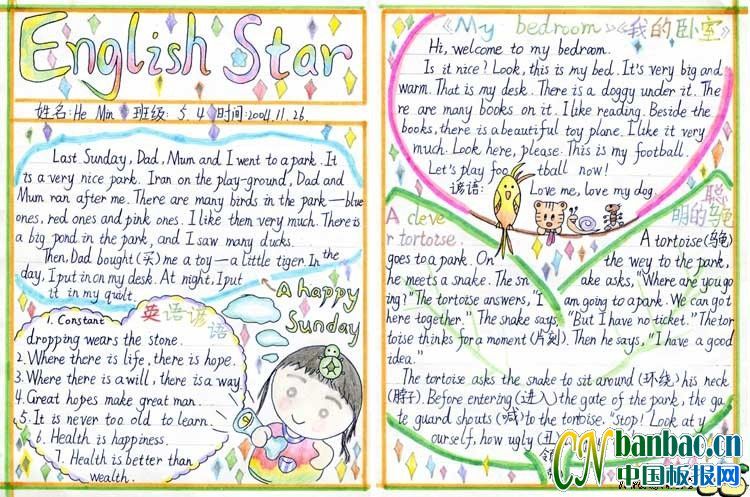 English Star
姓名: He Min 班级: 5.4 时间: 2004.11.26.
Last Sunday, Dad, Mum and I went to a park. It
is a very nice park. I ran on the play-ground, Dad and
Mum ran after me. There are many birds in the park — blue
ones, red ones and pink ones. I like them very much. There is
a big pond in the park, and I saw many ducks.
Then, Dad bought (买) me a toy — a little tiger. In the
day, I put in on my desk. At night, I put
it in my quilt.
A happy
Sunday
英语谚语
1. Constant
dropping wears the stone.
2. Where there is life, there is hope.
3. Where there is a will, there is a way
4. Great hopes make great man.
5. It is never too old to learn.
6. Health is happiness.
7. Health is better than
wealth.
《My bedroom》《我的卧室》
Hi, welcome to my bedroom.
Is it nice? Look, this is my bed. It's very big and
warm. That is my desk. There is a doggy under it. The
re are many books on it. I like reading. Beside the
books, there is a beautiful toy plane. I like it very
much. Look here, please. This is my football.
Let's play football now!
谚语: Love me, love my dog.
A clever tortoise.
聪明的龟
A tortoise (乌龟)
goes to a park. On the wey to the park,
he meets a snake. The snake asks, "Where are you go
ing?" The tortoise answers, "I am going to a park. We can got
here together." The snake says, "But I have no ticket." The tor
toise thinks for a moment (片刻). Then he says, "I have a good
idea."
The tortoise asks the snake to sit around (环绕) his neck
(脖子). Before entering (进入) the gate of the park, the ga
te guard shouts (喊) to the tortoise. "Stop! Look at y
ourself, how ugly (丑)
CN banbao.cn
中国板报网